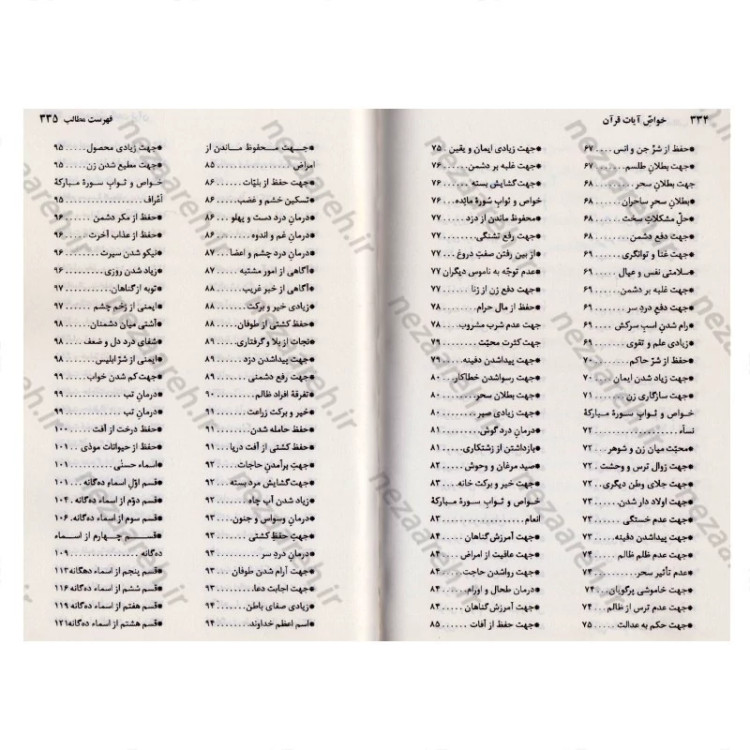 ۳۳۴ خواصّ آیات قرآن
●حفظ از شرّ جن و انس .... ۶۷
●جهت بطلان طلسم ...... ۶۷
جهت بطلان سحر ........ ۶۸
●بطلان سحر ساحران ..... ۶۸
●حلّ مشکلات سخت ..... ۶۸
●جهت دفع دشمن ........ ۶۸
●جهت غنا و توانگری ...... ۶۹
●سلامتی نفس و عیال ..... ۶۹
●جهت غلبه بر دشمن ..... ۶۹
●جهت دفع درد سر ....... ۶۹
●رام شدن اسب سرکش .... ۶۹
●زیادی علم و تقوی ...... ۶۹
●حفظ از شرّ حاکم ....... ۷۰
●جهت زیاد شدن ایمان .... ۷۰
●جهت سازگاری زن ...... ۷۱
خواص و ثواب سورهٔ مبارکهٔ
نساء .................. ۷۲
●محبّت میان زن و شوهر ... ۷۲
●جهت زوال ترس و وحشت . ۷۲
●جهت جلای وطن دیگری .. ۷۲
●جهت اولاد دار شدن ..... ۷۳
●جهت عدم خستگی ...... ۷۳
●جهت پیداشدن دفینه .... ۷۳
●جهت عدم ظلم ظالم ..... ۷۴
●عدم تأثیر سحر ......... ۷۴
●جهت خاموشی پرگویان ... ۷۴
●جهت عدم ترس از ظالم ... ۷۴
●جهت حکم به عدالت ..... ۷۵
●جهت زیادی ایمان و یقین . ۷۵
●جهت غلبه بر دشمن ..... ۷۶
●جهت گشایش بسته ..... ۷۶
خواص و ثواب سورهٔ مائده .. ۷۶
محفوظ ماندن از دزد ..... ۷۷
●جهت رفع تشنگی ....... ۷۷
●از بین رفتن صفتِ دروغ ... ۷۷
●عدم توجّه به ناموس دیگران ۷۷
●جهت دفع زن از زنا ...... ۷۷
●حفظ از مال حرام ....... ۷۸
جهت عدم شرب مشروب .. ۷۸
جهت کثرت محبّت ....... ۷۹
●جهت پیداشدن دفینه .... ۷۹
●جهت رسواشدن خطاکار .. ۸۰
●جهت بطلان سحر ....... ۸۰
●جهت زیادی صبر ....... ۸۰
●درمان درد گوش ........ ۸۱
●بازداشتن از زشتکاری .... ۸۱
●صید مرغان و وحوش .... ۸۲
●جهت خیر و برکت خانه ... ۸۳
خواص و ثواب سورهٔ مبارکهٔ
انعام .................. ۸۳
●جهت آمرزش گناهان .... ۸۴
●جهت عافیت از امراض ... ۸۴
●جهت رواشدن حاجت .... ۸۴
●درمان طحال و اورام ..... ۸۴
●جهت آمرزش گناهان .... ۸۴
●جهت حفظ از آفات ...... ۸۵
فهرست مطالب ۳۳۵
●جهت محفوظ ماندن از
امراض ................ ۸۵
●جهت حفظ از بلیّات ..... ۸۶
●تسکین خشم و غضب .... ۸۶
●درمان درد دست و پهلو ... ۸۶
●درمان غم و اندوه ....... ۸۶
●درمان درد چشم و اعضا ... ۸۷
●آگاهی از امور مشتبه ..... ۸۷
●آگاهی از خبر غریب ..... ۸۷
●زیادی خیر و برکت ...... ۸۸
●حفظ کشتی از طوفان .... ۸۸
نجات از بلا و گرفتاری .... ۸۹
●جهت پیداشدن دزد ..... ۸۹
●جهت رفع دشمنی ...... ۸۹
تفرقهٔ افراد ظالم ......... ۹۰
●خیر و برکت زراعت ..... ۹۱
●جهت حامله شدن ....... ۹۱
●حفظ کشتی از آفت دریا .. ۹۱
●جهت برآمدن حاجات .... ۹۲
●جهت گشایش مرد بسته ... ۹۲
●زیاد شدن آب چاه ...... ۹۲
●درمان وسواس و جنون ... ۹۳
●جهت حفظِ کشتی ...... ۹۳
●درمان درد سر .......... ۹۳
●جهت آرام شدن طوفان ... ۹۳
●جهت اجابت دعا ........ ۹۳
●زیادی صفای باطن ...... ۹۴
●اسم اعظم خداوند ....... ۹۴
●جهت زیادی محصول ..... ۹۵
●جهت مطیع شدن زن .... ۹۵
خواص و ثواب سورهٔ مبارکهٔ
أعراف ................ ۹۵
●حفظ از مکر دشمن ...... ۹۶
●حفظ از عذاب آخرت .... ۹۶
●نیکو شدن سیرت ....... ۹۶
●زیاد شدن روزی ........ ۹۶
●توبه ازگناهان .......... ۹۷
●ایمنی از زخم چشم ...... ۹۷
●آشتی میان دشمنان ..... ۹۸
●شفای درد دل و ضعف ... ۹۸
●ایمنی از شرّ ابلیس ...... ۹۸
●جهت کم شدن خواب ... ۹۹
●درمان تب ............ ۹۹
●درمان تب ............ ۹۹
●حفظ درخت از آفت .... ۱۰۰
●حفظ از حیوانات موذی .. ۱۰۱
●اسماء حسنٰی .......... ۱۰۱
●قسم اوّل اسماء ده‌گانه ... ۱۰۱
●قسم دوّم از اسماء ده‌گانه . ۱۰۴
●قسم سوم از اسماء ده‌گانه . ۱۰۶
●قسم چهارم از اسماء
ده‌گانه ............... ۱۰۹
●قسم پنجم از اسماء دهگانه ۱۱۳
●قسم ششم از اسماء ده‌گانه ۱۱۶
●قسم هفتم از اسماء ده‌گانه ۱۱۹
●قسم هشتم از اسماء ده‌گانه ۱۲۱
nezaareh.ir